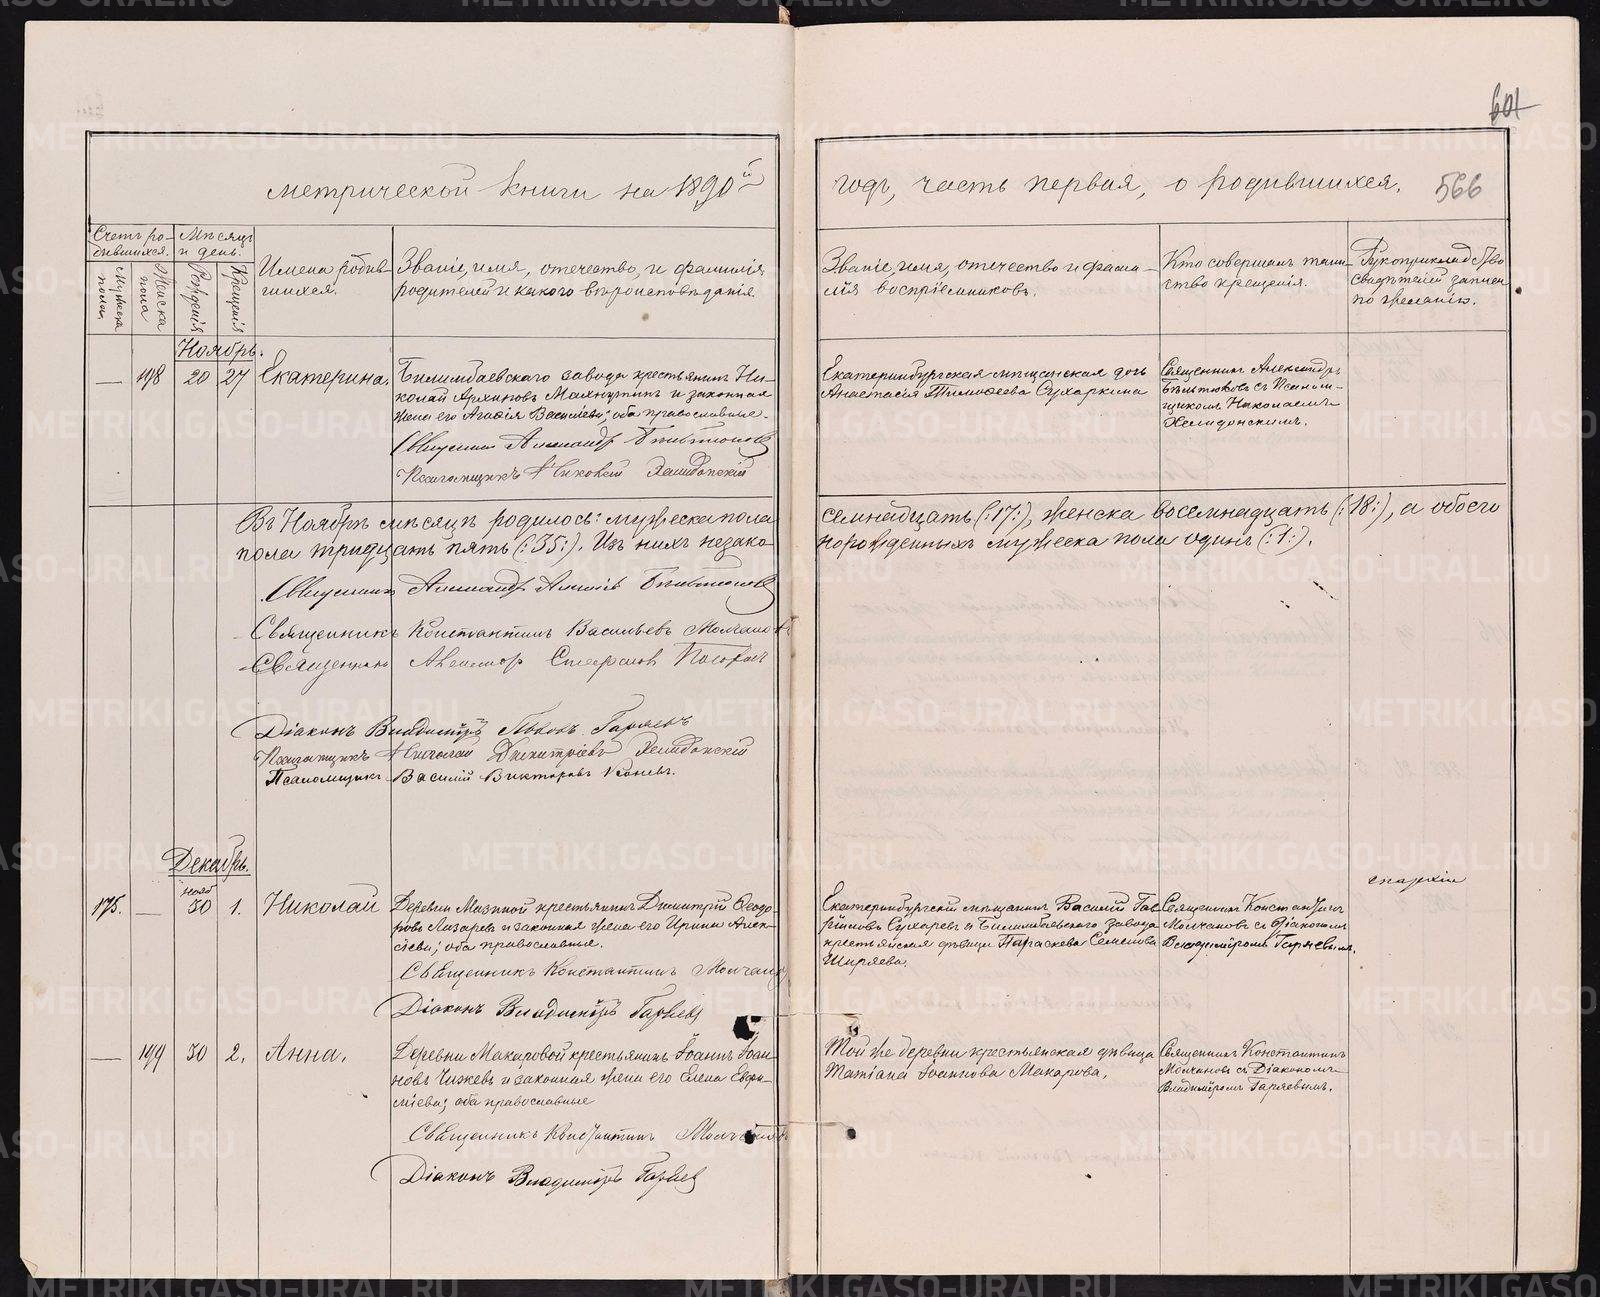 601
метрической книги на 1890й
годъ, часть первая, о родившихся. 566
Счетъ ро-
дившихся.
Мужеска
пола
Женска
пола
Мѣсяцъ
и день.
Рожденія
Крещенія
Имена родив-
шихся.
Званіе, имя, отечество, и фамилія
родителей и какого вѣроисповѣданія.
Званіе, имя, отечество и фами-
лія воспріемниковъ.
Кто совершалъ таин-
ство крещенія.
Рукоприкладство
свидѣтелей записи
по желанію.
Ноябрь.
— 198 20 27 Екатерина.
Билимбаевскаго завода крестьянинъ Ни-
колай Архиповъ Махнутинъ и законная
жена его Агафія Васильева; оба православные.
Священникъ Александръ
Псаломщикъ Николай Хелидонскій
Екатеринбургская мѣщанская дочь
Анастасія Тимофеева Сухаркина
Священникъ Александръ
съ Псалом-
щикомъ Николаемъ
Хелидонскимъ.
Въ Ноябрѣ мѣсяцѣ родилось: мужеска пола
семнадцать (:17:), женска восемнадцать (:18:), а обоего
пола тридцать пять (:35:). Изъ нихъ незако-
норожденныхъ мужеска пола одинъ (:1:).
Священникъ Александръ
Священникъ Константинъ Васильевъ Молчановъ
Священникъ
Діаконъ Владиміръ Львовъ Гаряевъ
Псаломщикъ Николай Димитріевъ Хелидонскій
Псаломщикъ Василій Викторовъ Коневъ.
Декабрь.
нояб
175. — 30 1. Николай
Деревни Мазиной крестьянинъ Димитрій Ѳеодо-
ровъ Лазаревъ и законная жена его Ирина Алек-
сіева; оба православные.
Священникъ Константинъ Молчановъ
Діаконъ Владиміръ Гаряевъ
Екатеринбургскій мѣщанинъ Василій Гав-
риловъ Сухаревъ и Билимбаевскаго завода
крестьянская дѣвица Параскева Семенова
Ширяева.
Священникъ Константинъ
Молчановъ съ Діакономъ
Владиміромъ Гаряевымъ.
— 199 30 2. Анна.
Деревни Макаровой крестьянинъ Іоаннъ Іоан-
новъ Чижевъ и законная жена его Елена Евфи-
міева; оба православные
Священникъ Константинъ Молчановъ
Діаконъ Владиміръ Гаряевъ
Той же деревни крестьянская дѣвица
Татіана Іоаннова Макарова.
Священникъ Константинъ
Молчановъ съ Діакономъ
Владиміромъ Гаряевымъ.
METRIKI.GASO-URAL.RU